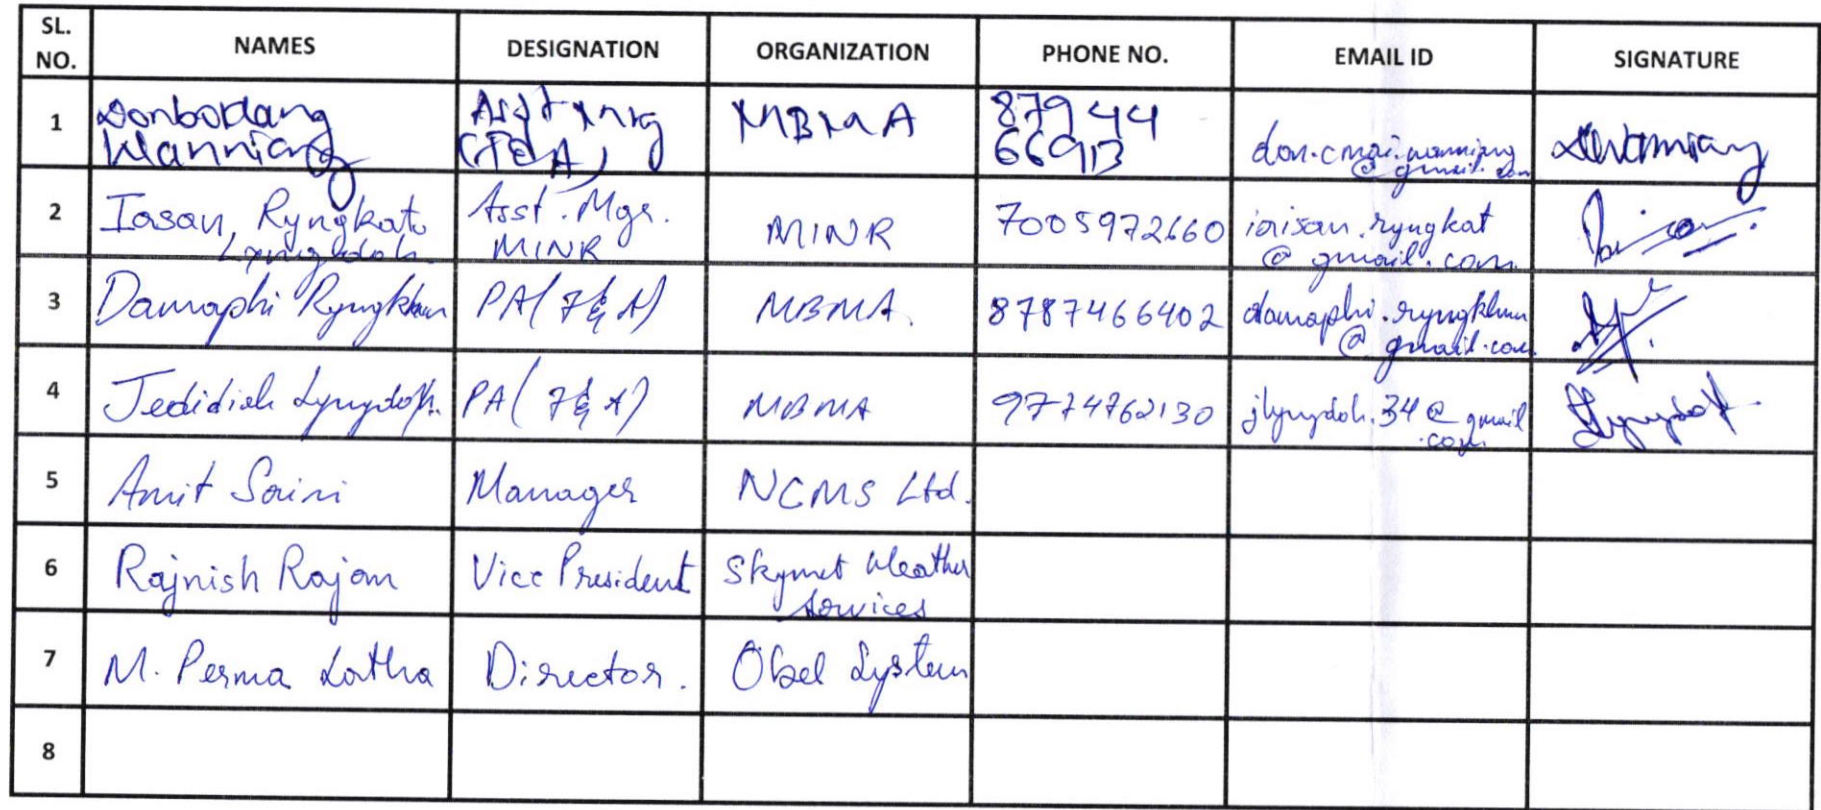 SL. NO. NAMES DESIGNATION ORGANIZATION PHONE NO. EMAIL ID SIGNATURE
1 Donbordang Wanniang Asst Mng (F&A) MBMA 87944 66913 @gmail.com
2 Iasan Ryngkat Lyngdoh Asst. Mgr. MINR MINR 7005972660 iaisan.ryngkat @gmail.com
3 Damaphi Ryngkhun PA(F&A) MBMA. 8787466402 damaphi.ryngkhun @gmail.com
4 Jedidiah Lyngdoh. PA(F&A) MBMA 9774762130 jlyngdoh.34@gmail .com
5 Amit Saini Manager NCMS Ltd.
6 Rajnish Rajan Vice President Skymet Weather Services
7 M. Perma Latha Director. Obel System
8